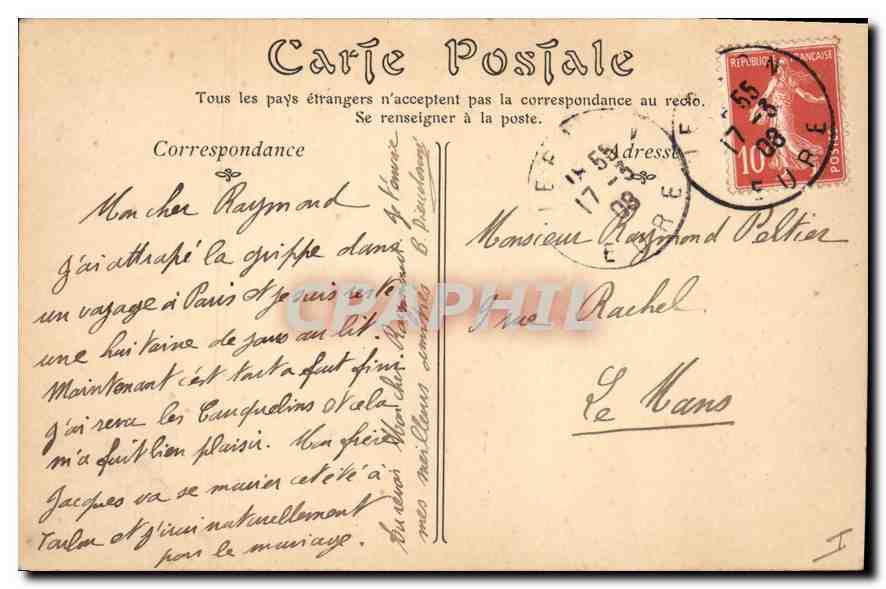 Carte Postale
Tous les pays étrangers n'acceptent pas la correspondance au recto.
Se renseigner à la poste.
Correspondance
Mon cher Raymond
j'ai attrapé la grippe dans
un voyage à Paris et je suis resté
une huitaine de jours au lit.
Maintenant c'est tout a fait fini
j'ai revu les Cauquelins et cela
m'a fait bien plaisir. Mon frère
Jacques va se marier cet été à
Toulon et j'irai naturellement
pour le mariage.
Au revoir Mon cher Raymond je t'envoie
mes meilleurs amitiés B. Dieudonné
Adresse
Monsieur Raymond Peltier
9 rue Rachel
Le Mans
REPUBLIQUE FRANÇAISE
10
POSTES
55
17 - 3
08
EURE
55
17 - 3
08
EURE
CPAPHIL
I